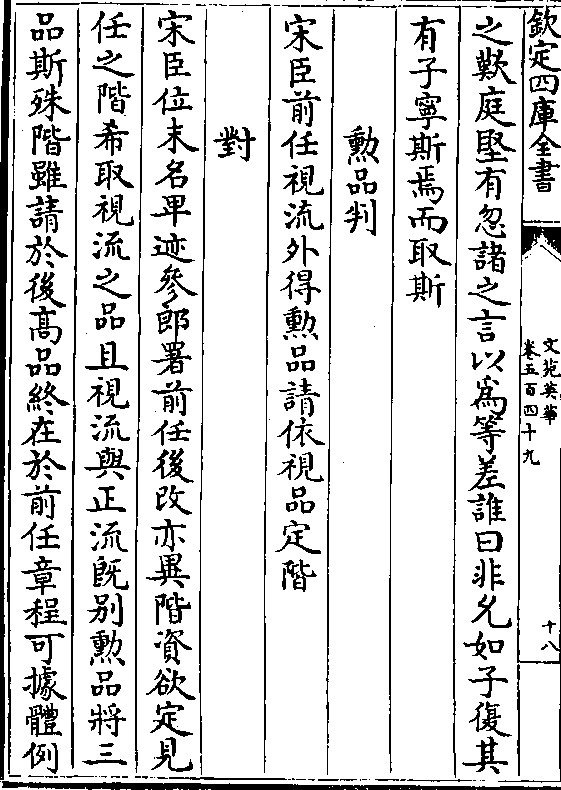 欽定四庫全書
文苑英華
卷五百四十九
十八
之歎庭堅有忽諸之言以爲等差誰曰非允如子復其
有子寧斯焉而取斯
勲品判
宋臣前任視流外得勲品請依視品定階
對
宋臣位末名卑迹參郎署前任後改亦異階資欲定見
任之階希取視流之品且視流與正流既别勲品將三
品斯殊階雖請於後髙品終在於前任章程可據體例